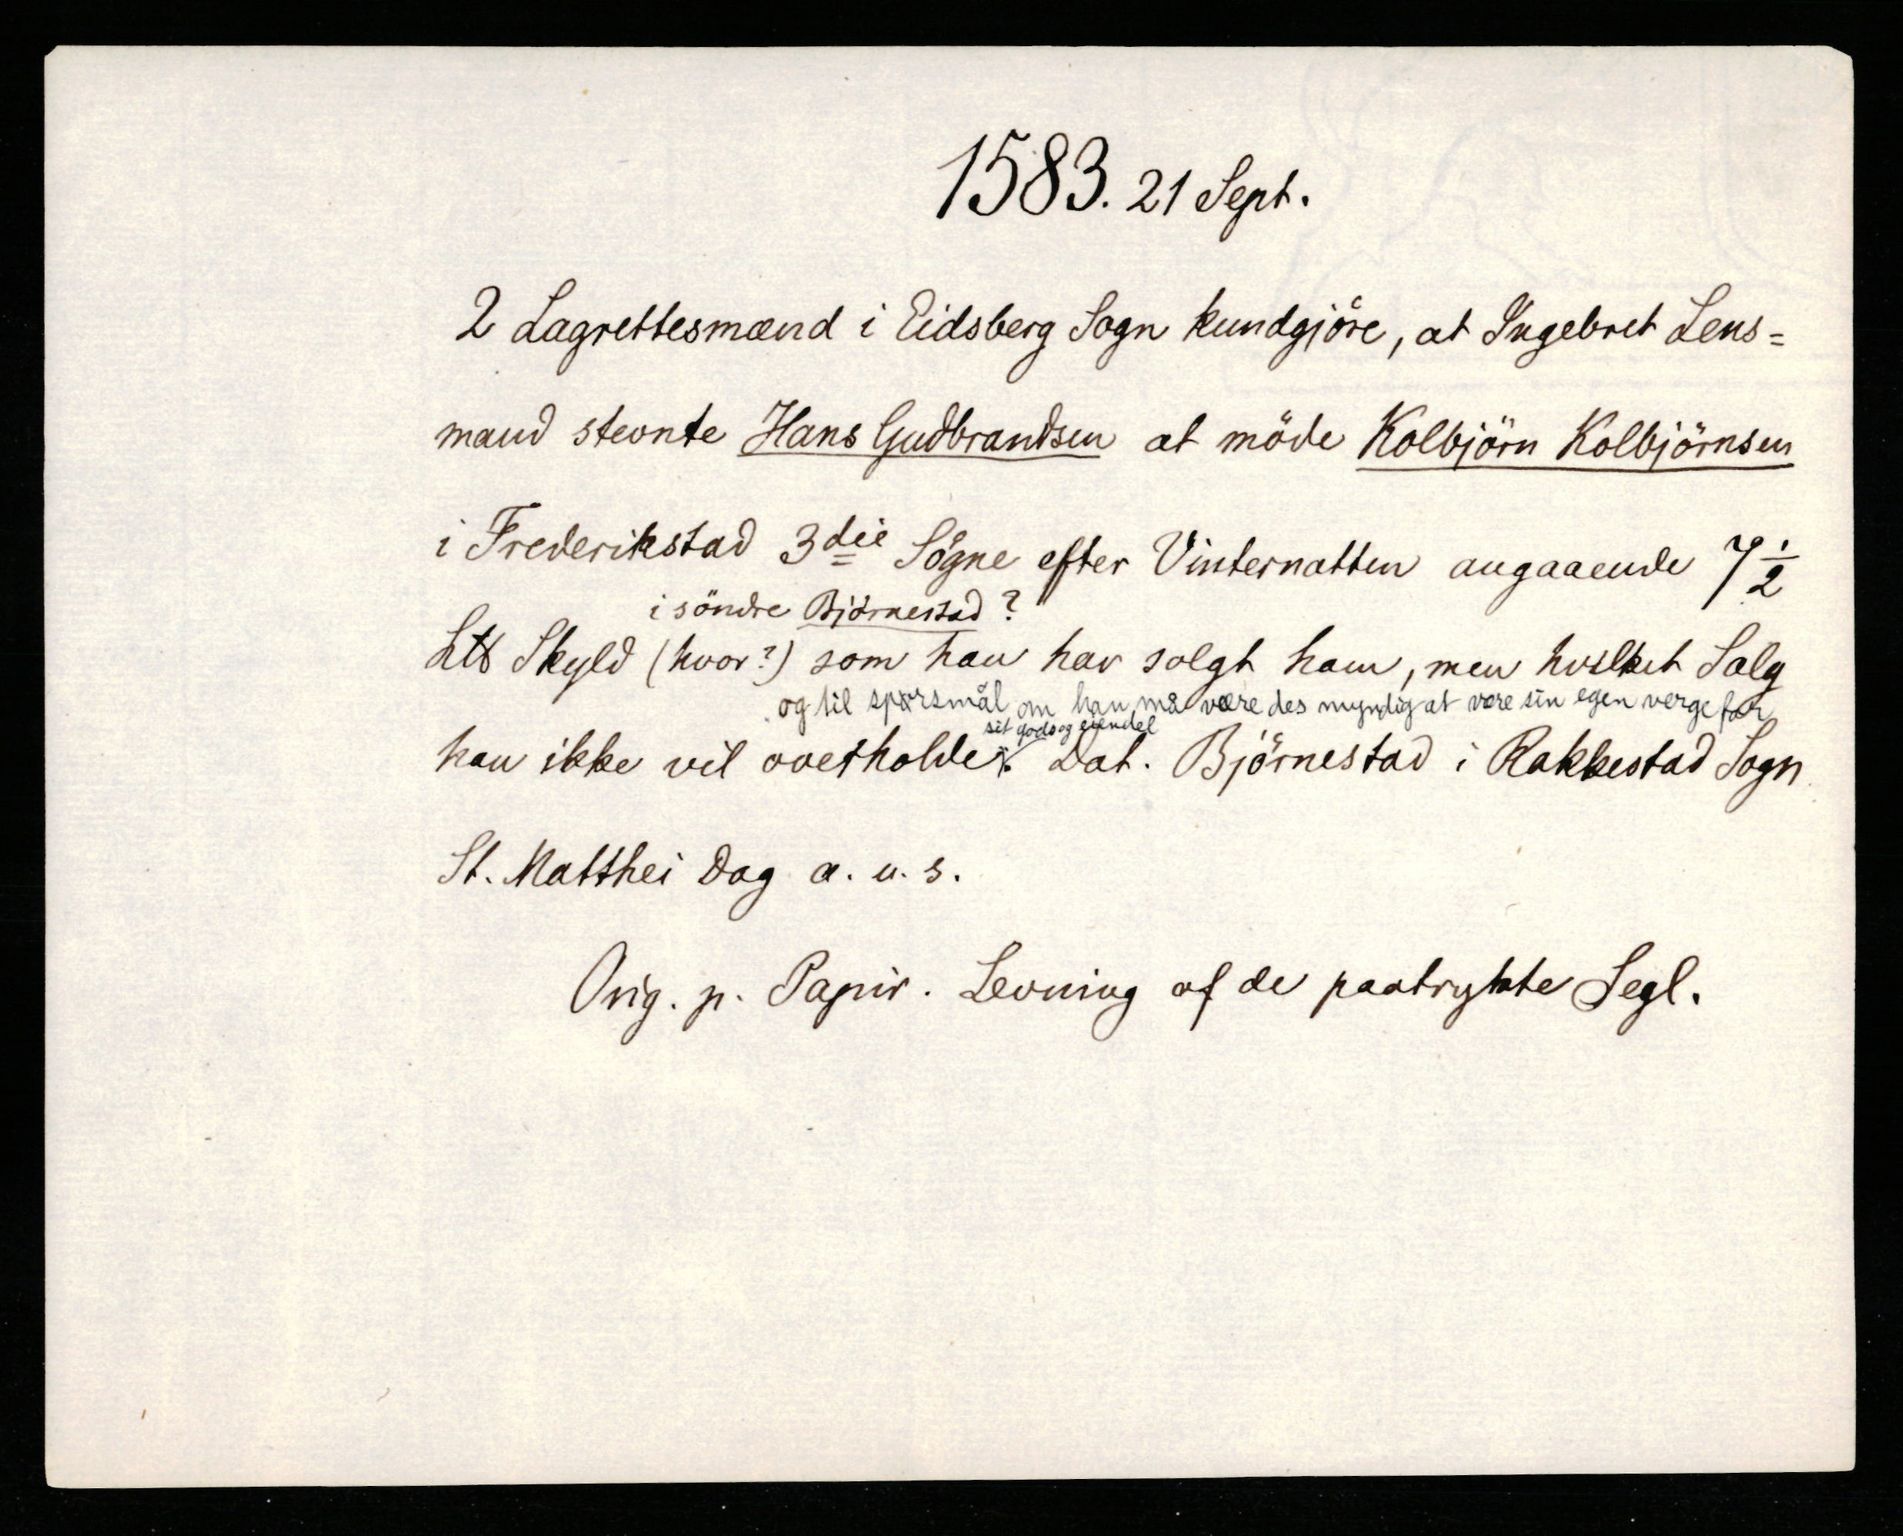 1583. 21 Sept.
2 Lagrettesmænd i Eidsberg Sogn kundgjöre, at Ingebret Lens=
mand stevnte Hans Gudbrandsen at möde Kolbjörn Kolbjörnsen
i Frederikstad 3die Sögne efter Vinternatten angaaende 7½
i söndre Björnestad?
L℔ Skyld (hvor?) som han har solgt ham, men hvilket Salg
og til spørsmål om han må være des myndig at være sin egen verge for
sit gods og eiendel
han ikke vil overholde. Dat. Björnestad i Rakkestad Sogn
St. Matthei Dag a. u. s.
Orig. p. Papir. Levning af de paatrykte Segl.